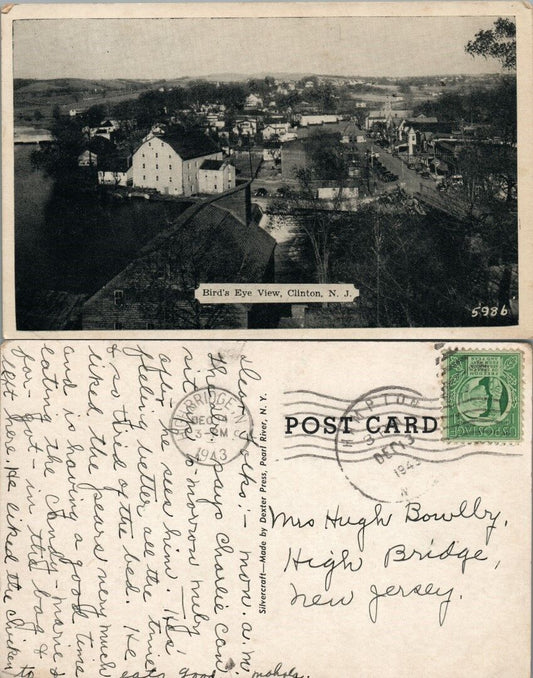 Bird's Eye View, Clinton, N. J.
5986
POST CARD
Silvercraft—Made by Dexter Press, Pearl River, N. Y.
HIGH BRIDGE
DEC 14
3 PM
1943
HAMPTON
DEC 13
1943
1¢
Mrs Hugh Bowlby,
High Bridge,
New Jersey.
Dear Folks: - mon. a.m.
The Dr. says Charlie can
sit up to-morrow mebby
after he sees him. He's
feeling better all the time
& so tired of the bed. He
liked the pears very much
and is having a good time
eating the candy - marie
for-got - in the bag &
left here. He liked the chicken to
eats good
mahola.